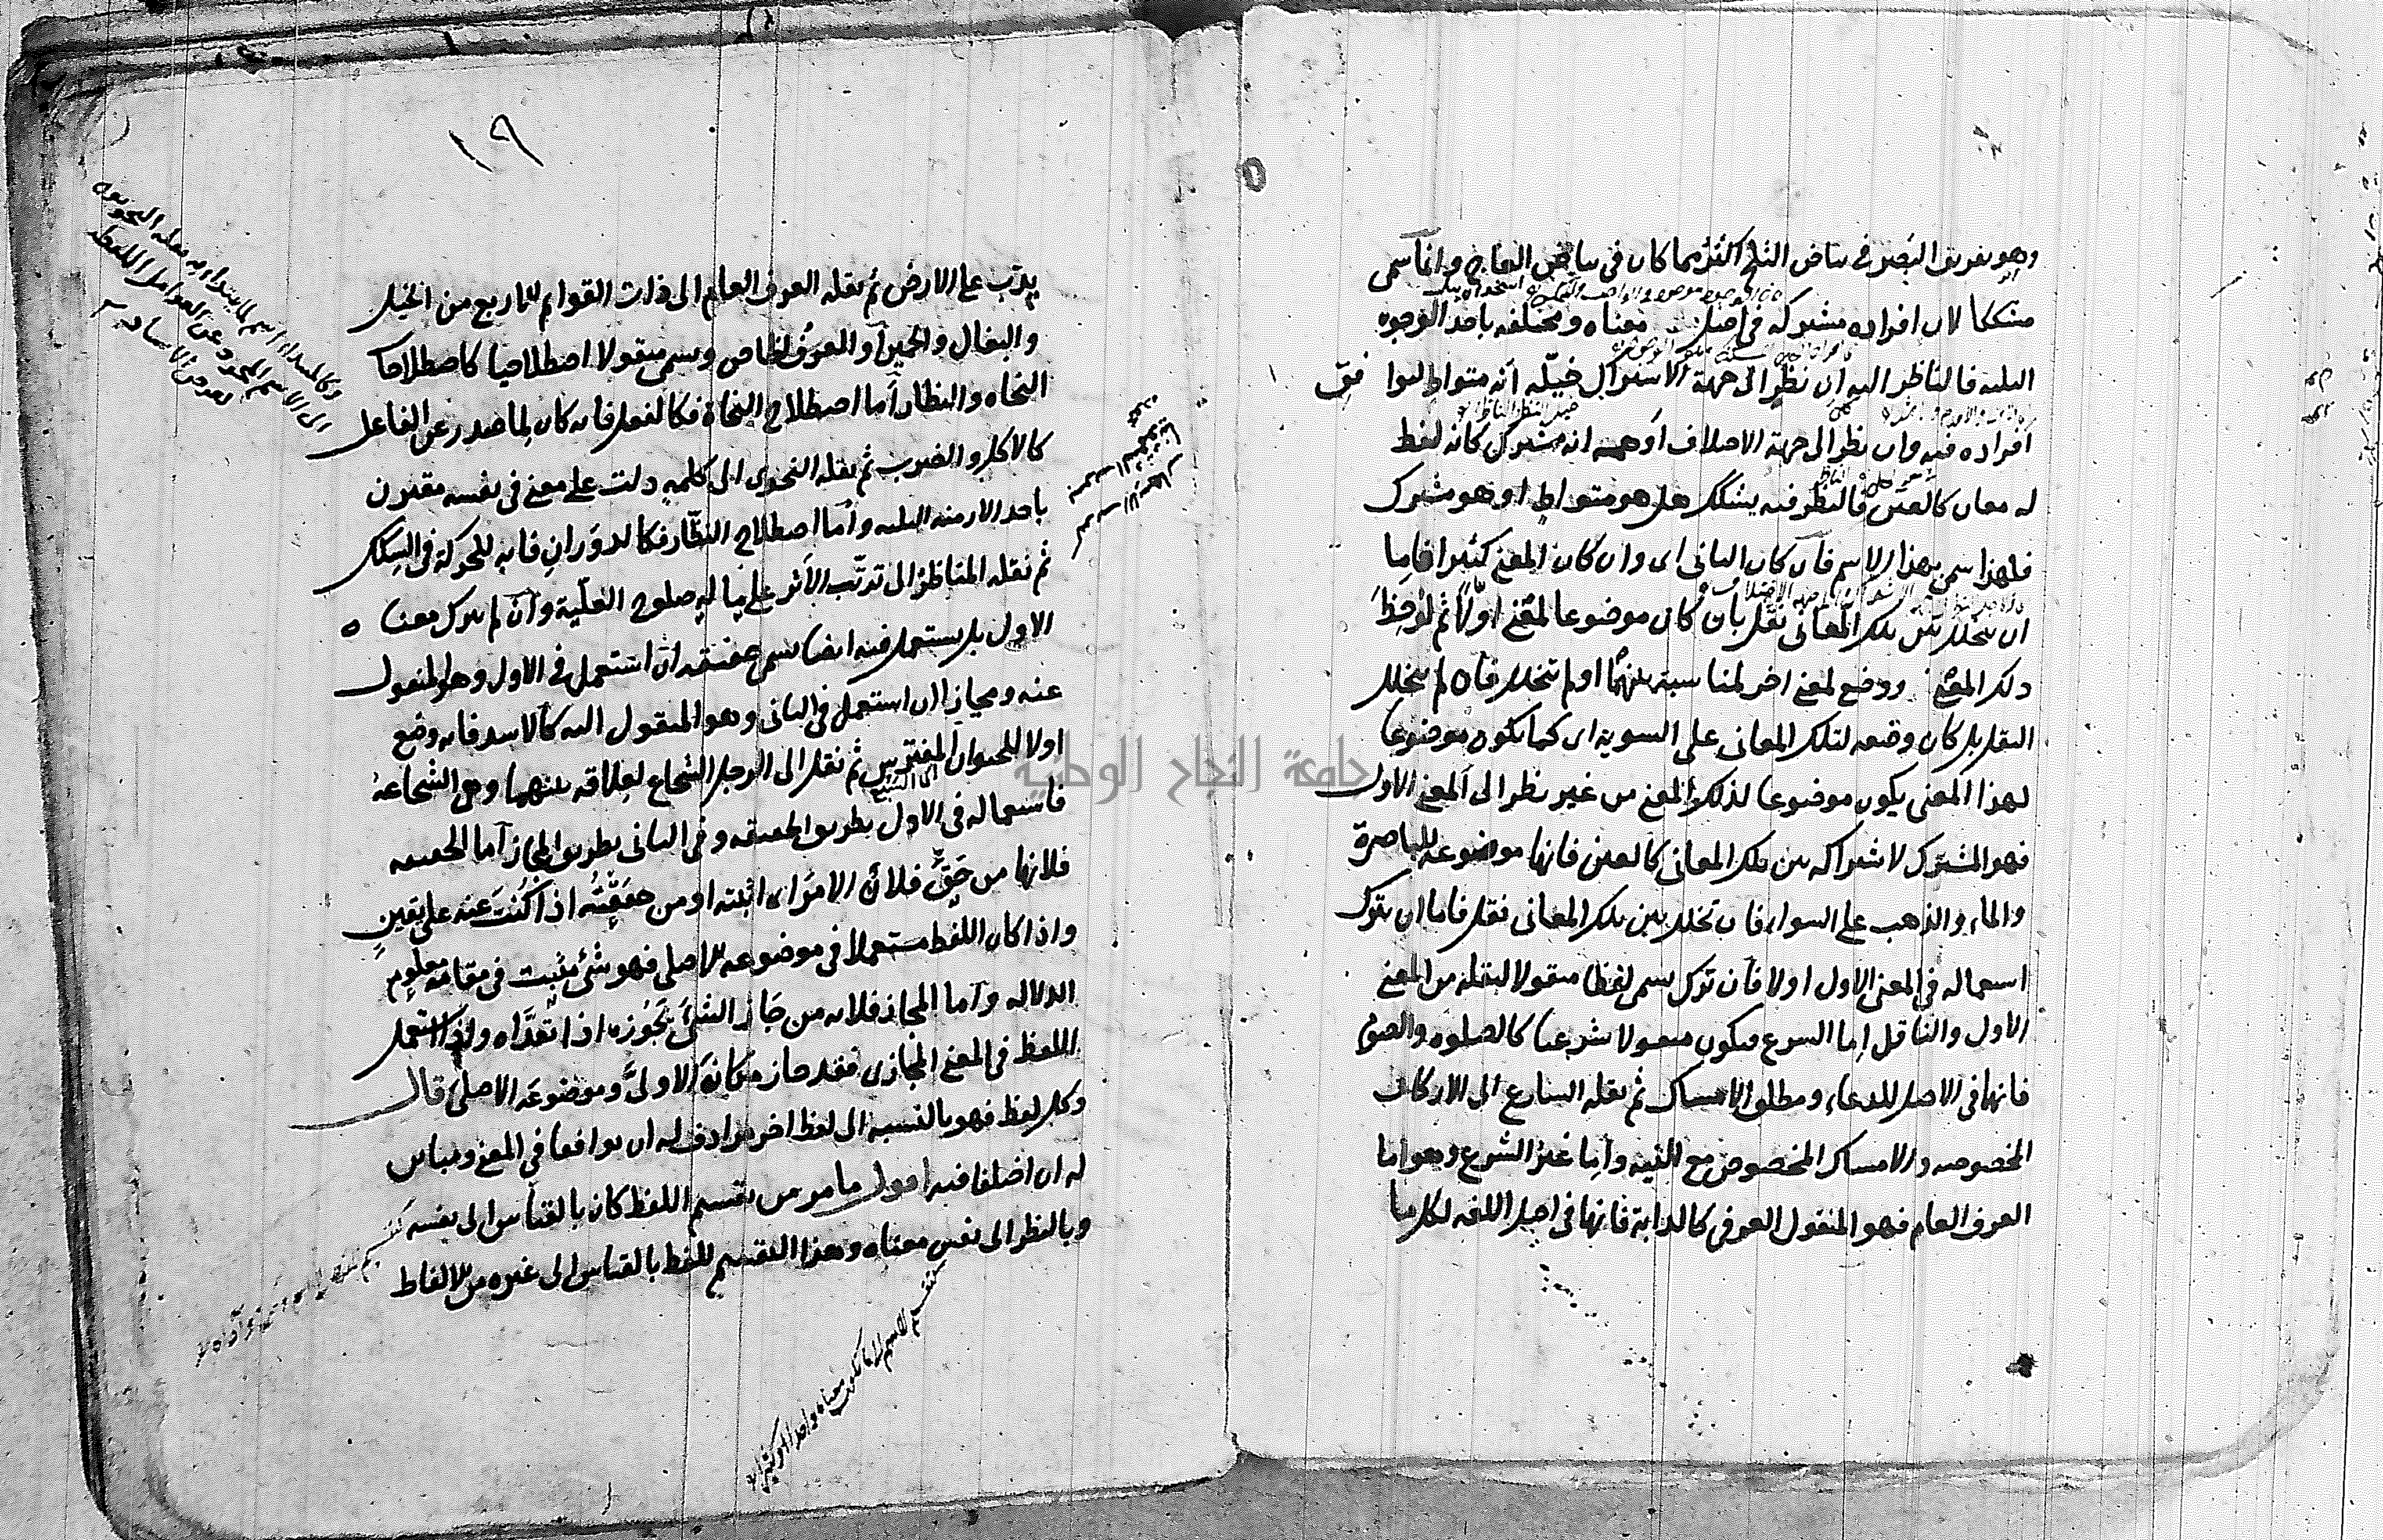 وهو تفريق البصر في بياض الثلج اكثر مما كان في بياض العاج وانما سمى
مشككا لان افراده مشتركة في اصل معناه ومختلفة باحد الوجوه
الثلثه فالناظر اليه ان نظر الى جهة الاشتراك خيله انه متواط لتوافق
افراده فيه وان نظر الى جهة الاختلاف اوهمه انه مشترك كانه لفظ
له معان كالعين فالنظر فيه يتشكك هل هو متواط او هو مشترك
فلهذا سمى بهذا الاسم فان كان الثاني اى وان كان المعنى كثيرا فاما
ان يتخلل بين تلك المعاني نقل بان كان موضوعا لمعنى اولا ثم لوحظ
ذلك المعنى ووضع لمعنى اخر لمناسبة بينهما او لم يتخلل فان لم يتخلل
النقل بل كان وضعه لتلك المعاني على السوية اى كما يكون موضوعا
لهذا المعنى يكون موضوعا لذلك المعنى من غير نظر الى المعنى الاول
فهو المشترك لاشتراكه بين تلك المعاني كالعين فانها موضوعة للباصرة
والماء والذهب على السواء فان تخلل بين تلك المعاني نقل فاما ان يترك
استعماله في المعنى الاول اولا فان ترك سمى لفظا منقولا لنقله من المعنى
الاول والناقل اما الشرع فيكون منقولا شرعيا كالصلوه والصوم
فانها في الاصل للدعاء ومطلق الامساك ثم نقله الشارع الى الاركان
المخصوصه والامساك المخصوص مع النيه واما غير الشرع وهو اما
العرف العام فهو المنقول العرفي كالدابة فانها في اصل اللغه لكل ما
١٩
يدب على الارض ثم نقله العرف العام الى ذات القوائم الاربع من الخيل
والبغال والحمير او العرف الخاص ويسمى منقولا اصطلاحيا كاصطلاحات
النحاه والنظار اما اصطلاح النحاة فكالفعل فانه كان لما صدر عن الفاعل
كالاكل والضرب ثم نقله النحوى الى كلمة دلت على معنى في نفسه مقترن
باحد الازمنه الثلثه واما اصطلاح النظار فكالدوران فانه للحركة في السكك
ثم نقله المناظر الى ترتب الاثر على ما له صلوح العلية وان لم يترك معناه
الاول بل يستعمل فيه ايضا يسمى حقيقة ان استعمل في الاول وهو المنقول
عنه ومجازا ان استعمل في الثاني وهو المنقول اليه كالاسد فانه وضع
اولا للحيوان المفترس ثم نقل الى الرجل الشجاع لعلاقه بينهما وهى الشجاعة
فاستعماله في الاول بطريق الحقيقه وفي الثاني بطريق المجاز اما الحقيقه
فلانها من حق فلان الامر اى اثبته او من حققته اذا كنت عنه على يقين
واذا كان اللفظ مستعملا في موضوعه الاصلى فهو شئ مثبت في مقامه معلوم
الدلاله واما المجاز فلانه من جاز الشئ يجوزه اذا تعداه واذا استعمل
اللفظ في المعنى المجازى فقد جاز مكانه الاول وموضوعه الاصلى قال
وكل لفظ فهو بالنسبه الى لفظ اخر مرادف له ان توافقا في المعنى ومباين
له ان اختلفا فيه اقول ما مر من تقسيم اللفظ كان بالقياس الى نفسه
وبالنظر الى نفس معناه وهذا التقسيم للفظ بالقياس الى غيره من الالفاظ
جامعة النجاح الوطنية